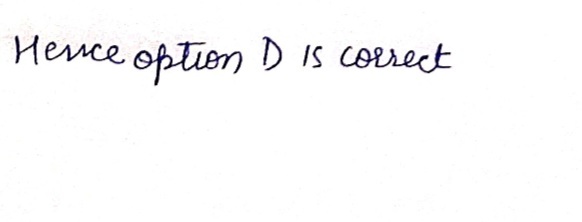 Hence option D is correct